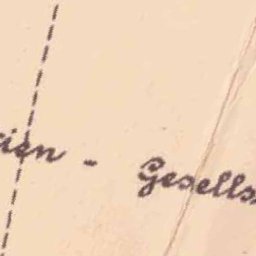 ien - Gesells